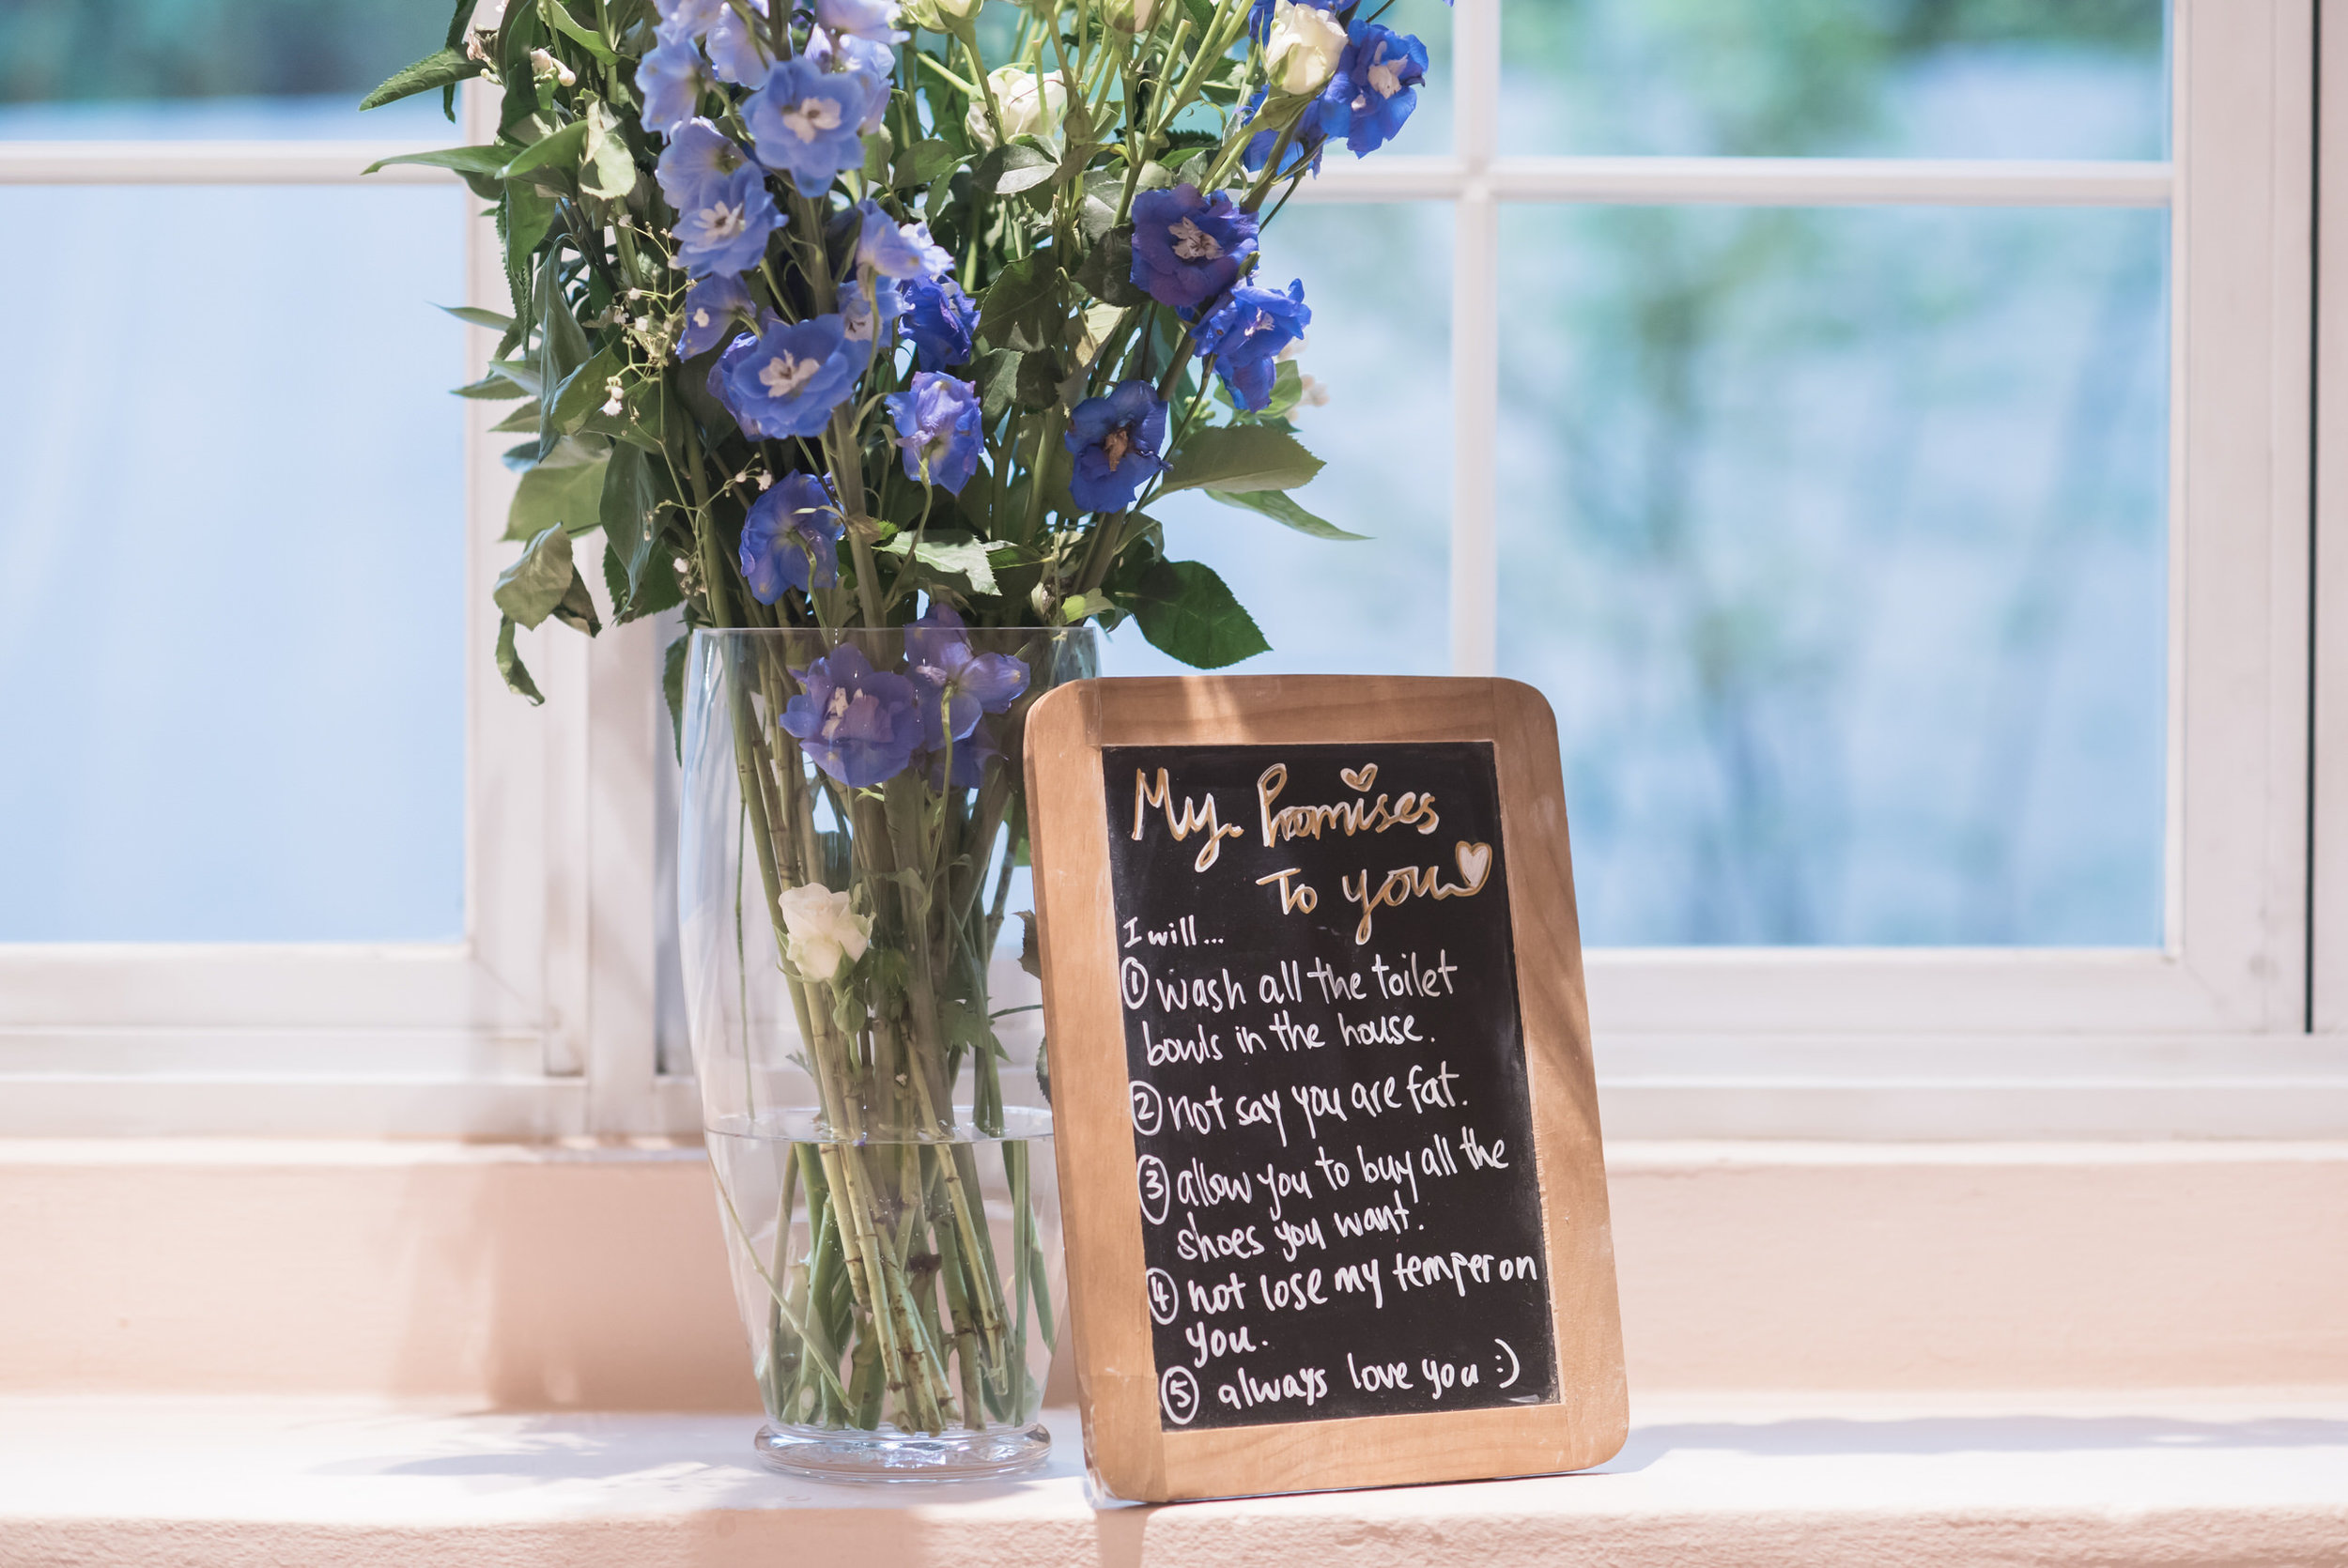 My Promises
To you
I will...
① wash all the toilet
bowls in the house.
② not say you are fat.
③ allow you to buy all the
shoes you want.
④ not lose my temper on
you.
⑤ always love you :)